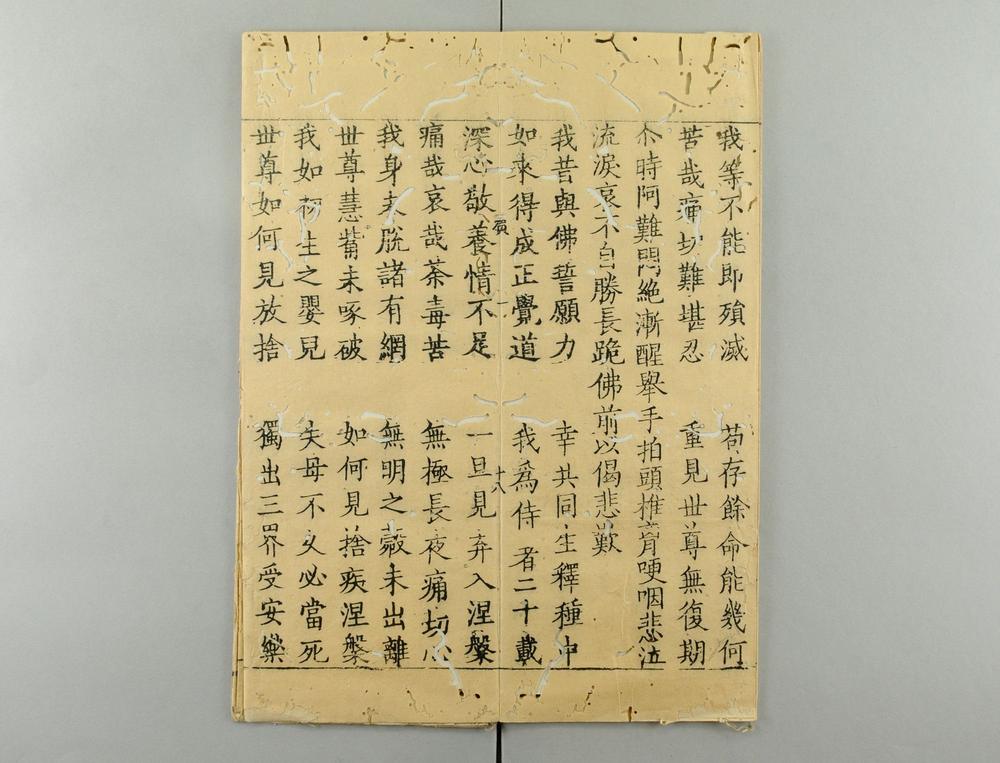 我等不能即殞滅　苟存餘命能幾何
苦哉痛切難堪忍　重見世尊無復期
尒時阿難悶絶漸醒舉手拍頭推胷哽咽悲泣
流淚哀不自勝長跪佛前以偈悲歎
我昔與佛誓願力　幸共同生釋種中
如來得成正覺道　我爲侍者二十載
賀　一　十八
深心敬養情不足　一旦見弃入涅槃
痛哉哀哉荼毒苦　無極長夜痛切心
我身未脱諸有網　無明之㲉未出離
世尊慧觜未啄破　如何見捨疾涅槃
我如初生之嬰兒　失母不久必當死
世尊如何見放捨　獨出三界受安樂